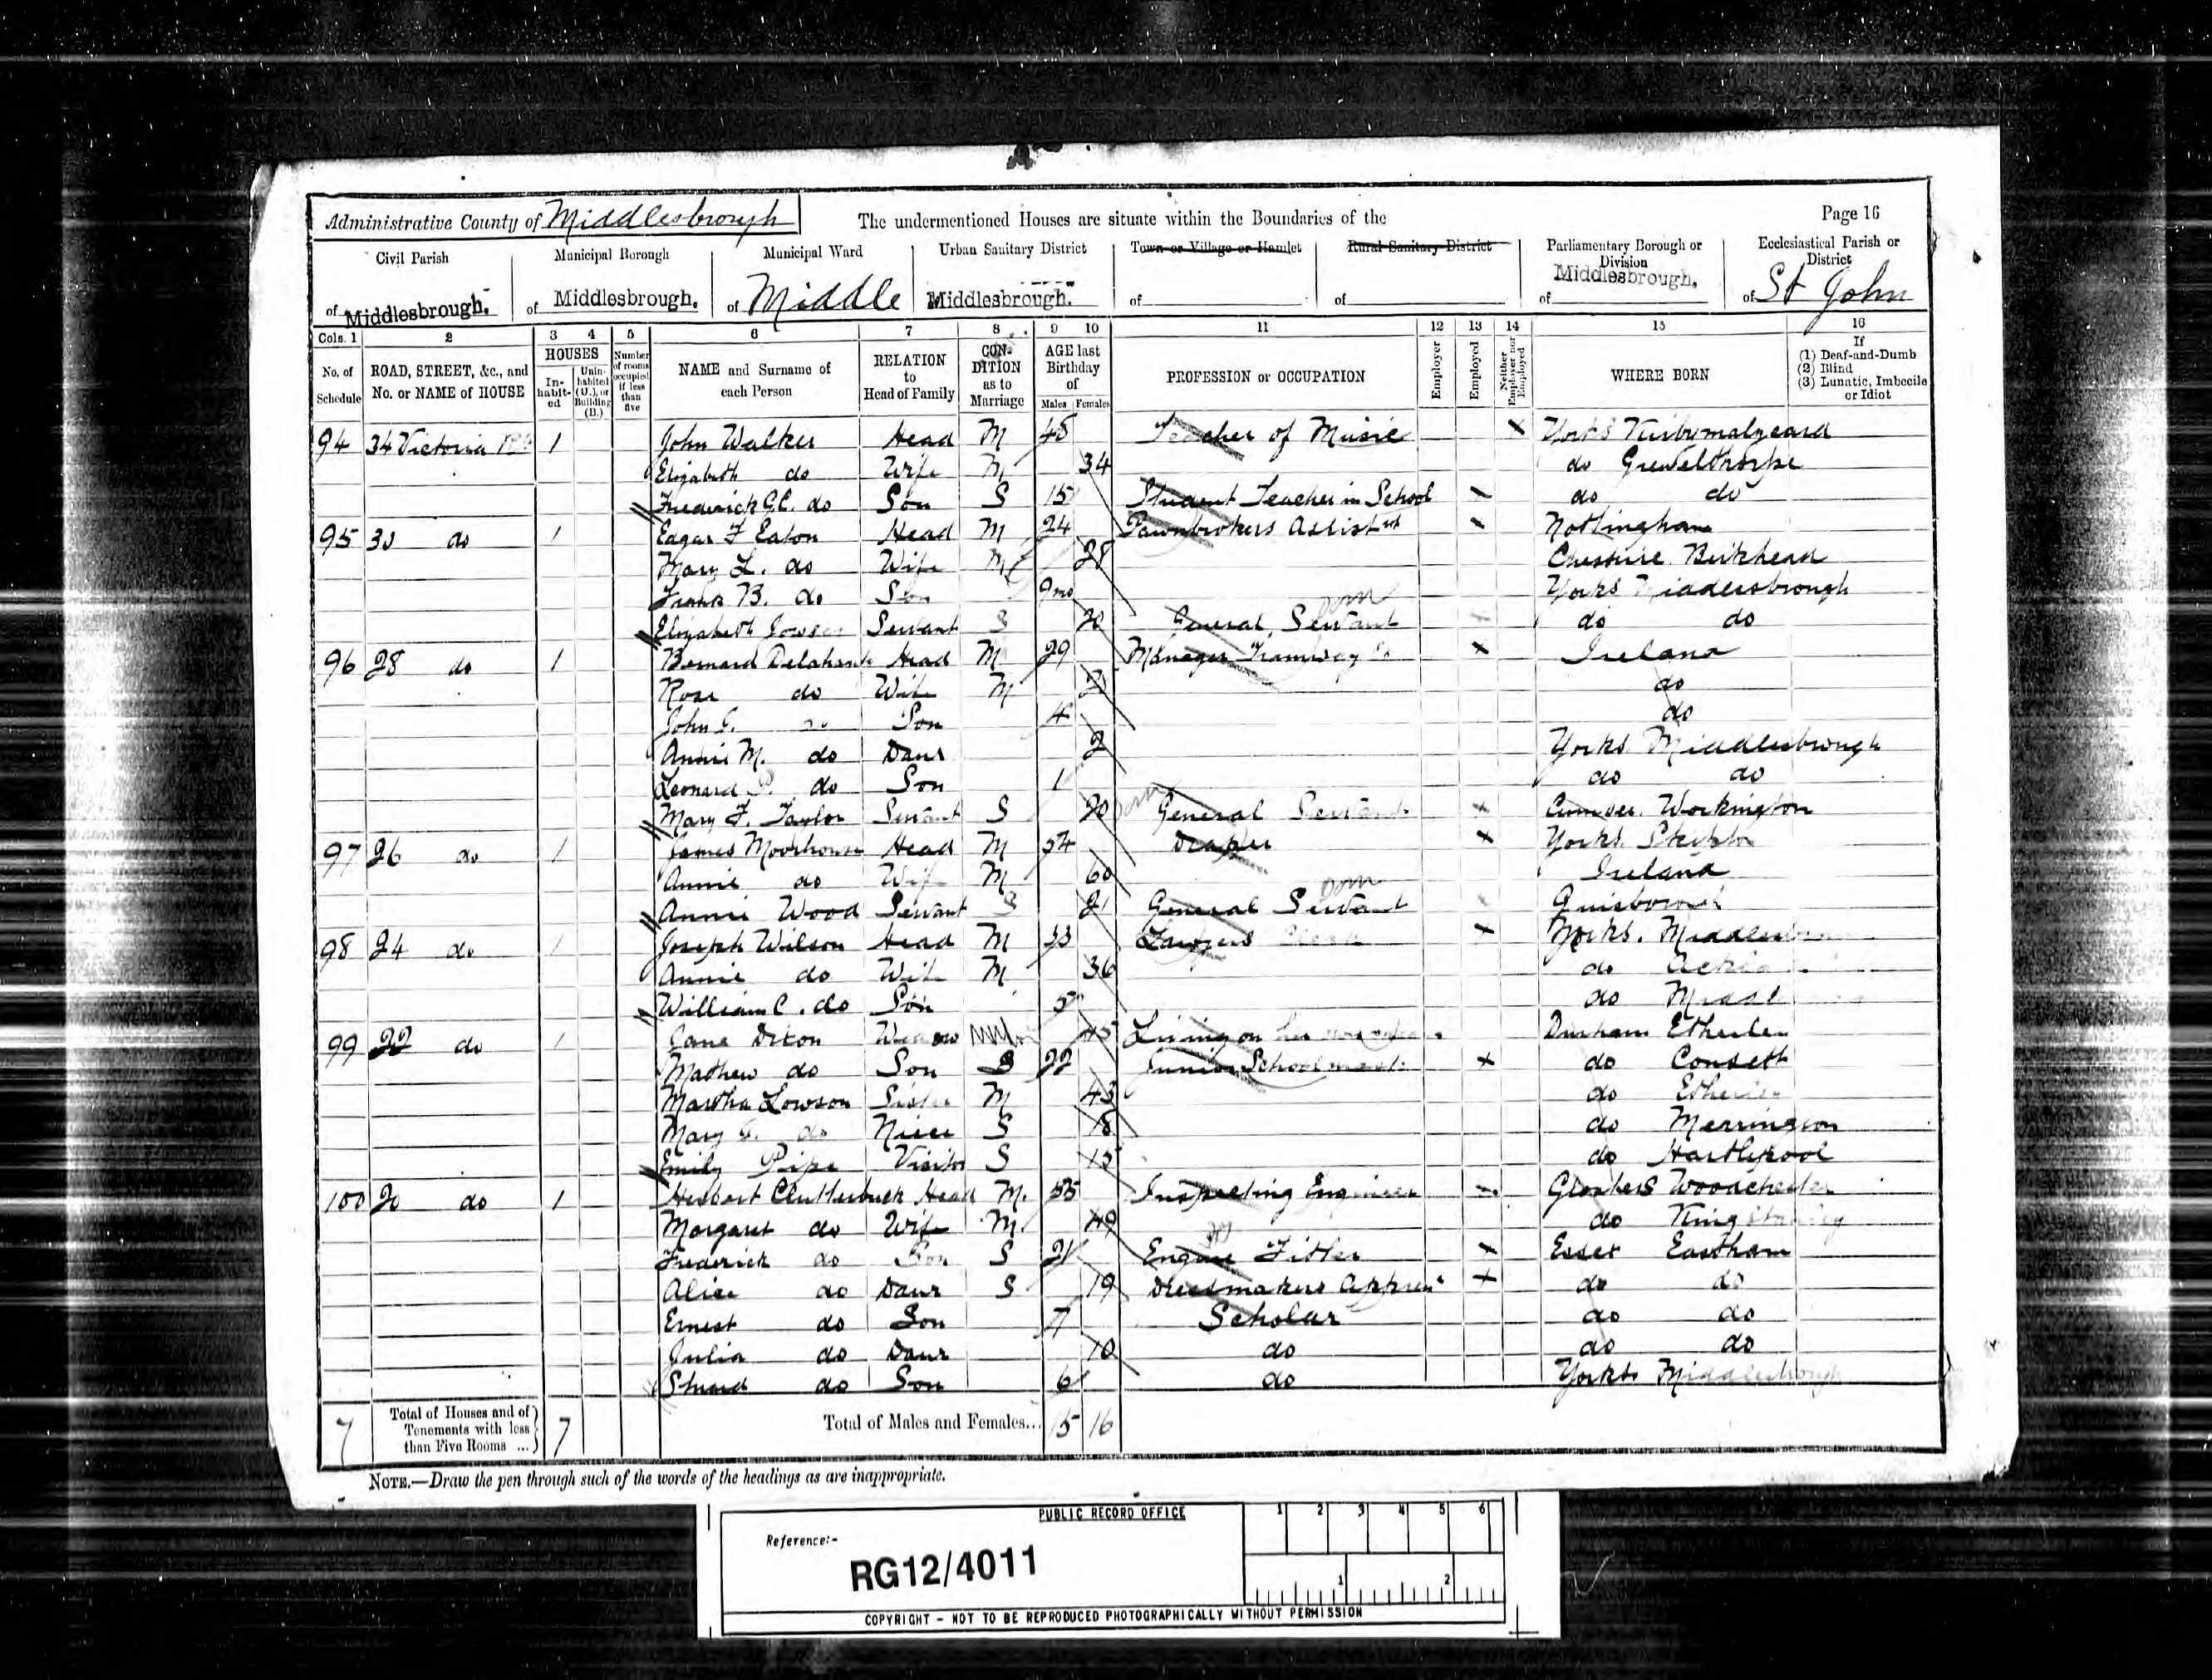 Administrative County of Middlesbrough The undermentioned Houses are situate within the Boundaries of the Page 16
Civil Parish Municipal Borough Municipal Ward Urban Sanitary District Town or Village or Hamlet Rural Sanitary District Parliamentary Borough or Division Ecclesiastical Parish or District
of Middlesbrough. of Middlesbrough. of Middle Middlesbrough. of of of Middlesbrough. of St John
Cols. 1 2 3 4 5 6 7 8 9 10 11 12 13 14 15 16
No. of Schedule ROAD, STREET, &c., and No. or NAME of HOUSE HOUSES In-habit-ed Unin-habited (U.), or Building (B.) Number of rooms occupied if less than five NAME and Surname of each Person RELATION to Head of Family CON-DITION as to Marriage AGE last Birthday of Males Females PROFESSION or OCCUPATION Employer Employed Neither Employer nor Employed WHERE BORN If (1) Deaf-and-Dumb (2) Blind (3) Lunatic, Imbecile or Idiot
94 34 Victoria 1 John Walker Head M 45 Teacher of Music X Yorks
Elizabeth do Wife M 34 do Grewelthorpe
Frederick G.C. do Son S 15 Student Teacher in School do do
95 30 do 1 Edgar F Eaton Head M 24 Pawnbrokers Assistnt Nottingham
Mary L. do Wife M 28 Cheshire Birkhead
Frank B. do Son 9mo Yorks Middlesbrough
Elizabeth Servant S 20 General Servant do do
96 28 do 1 Bernard Head M 29 Manager Tramway Co X Ireland
Rose do Wife M do
John J. do Son 4 do
Annie M. do Daur 2 Yorks Middlesbrough
Leonard P. do Son 1 do do
Mary F. Taylor Servant S 20 General Servant Workington
97 26 do 1 James Moorhouse Head M 54 Draper X Yorks Skipton
Annie do Wife M 60 Ireland
Annie Wood Servant S 21 General Servant
98 24 do 1 Joseph Wilson Head M 33 Lawyers X Yorks.
Annie do Wife M 36 do
William C. do Son 5 do
99 22 do 1 Jane Dixon Widow 45 Living on her Durham
Mathew do Son S 22 Junior X do Consett
Martha Lowson Sister M 43 do
Mary do Niece S 18 do Merrington
Emily Pipe Visitor S 15 do Hartlepool
100 20 do 1 Clutterbuck Head M. 55 Inspecting Engineer
Margaret do Wife M. 49 do
Frederick do Son S 21 Engine Fitter X Essex Eastham
Alice do Daur S 19 Dressmakers X do do
Ernest do Son Scholar do do
Julia do Daur 10 do do do
do Son 6 do Yorks Middlesbrough
7 Total of Houses and of Tenements with less than Five Rooms ... 7 Total of Males and Females... 15 16
NOTE.—Draw the pen through such of the words of the headings as are inappropriate.
PUBLIC RECORD OFFICE 1 2 3 4 5 6
Reference:-
RG12/4011
1 2
COPYRIGHT - NOT TO BE REPRODUCED PHOTOGRAPHICALLY WITHOUT PERMISSION